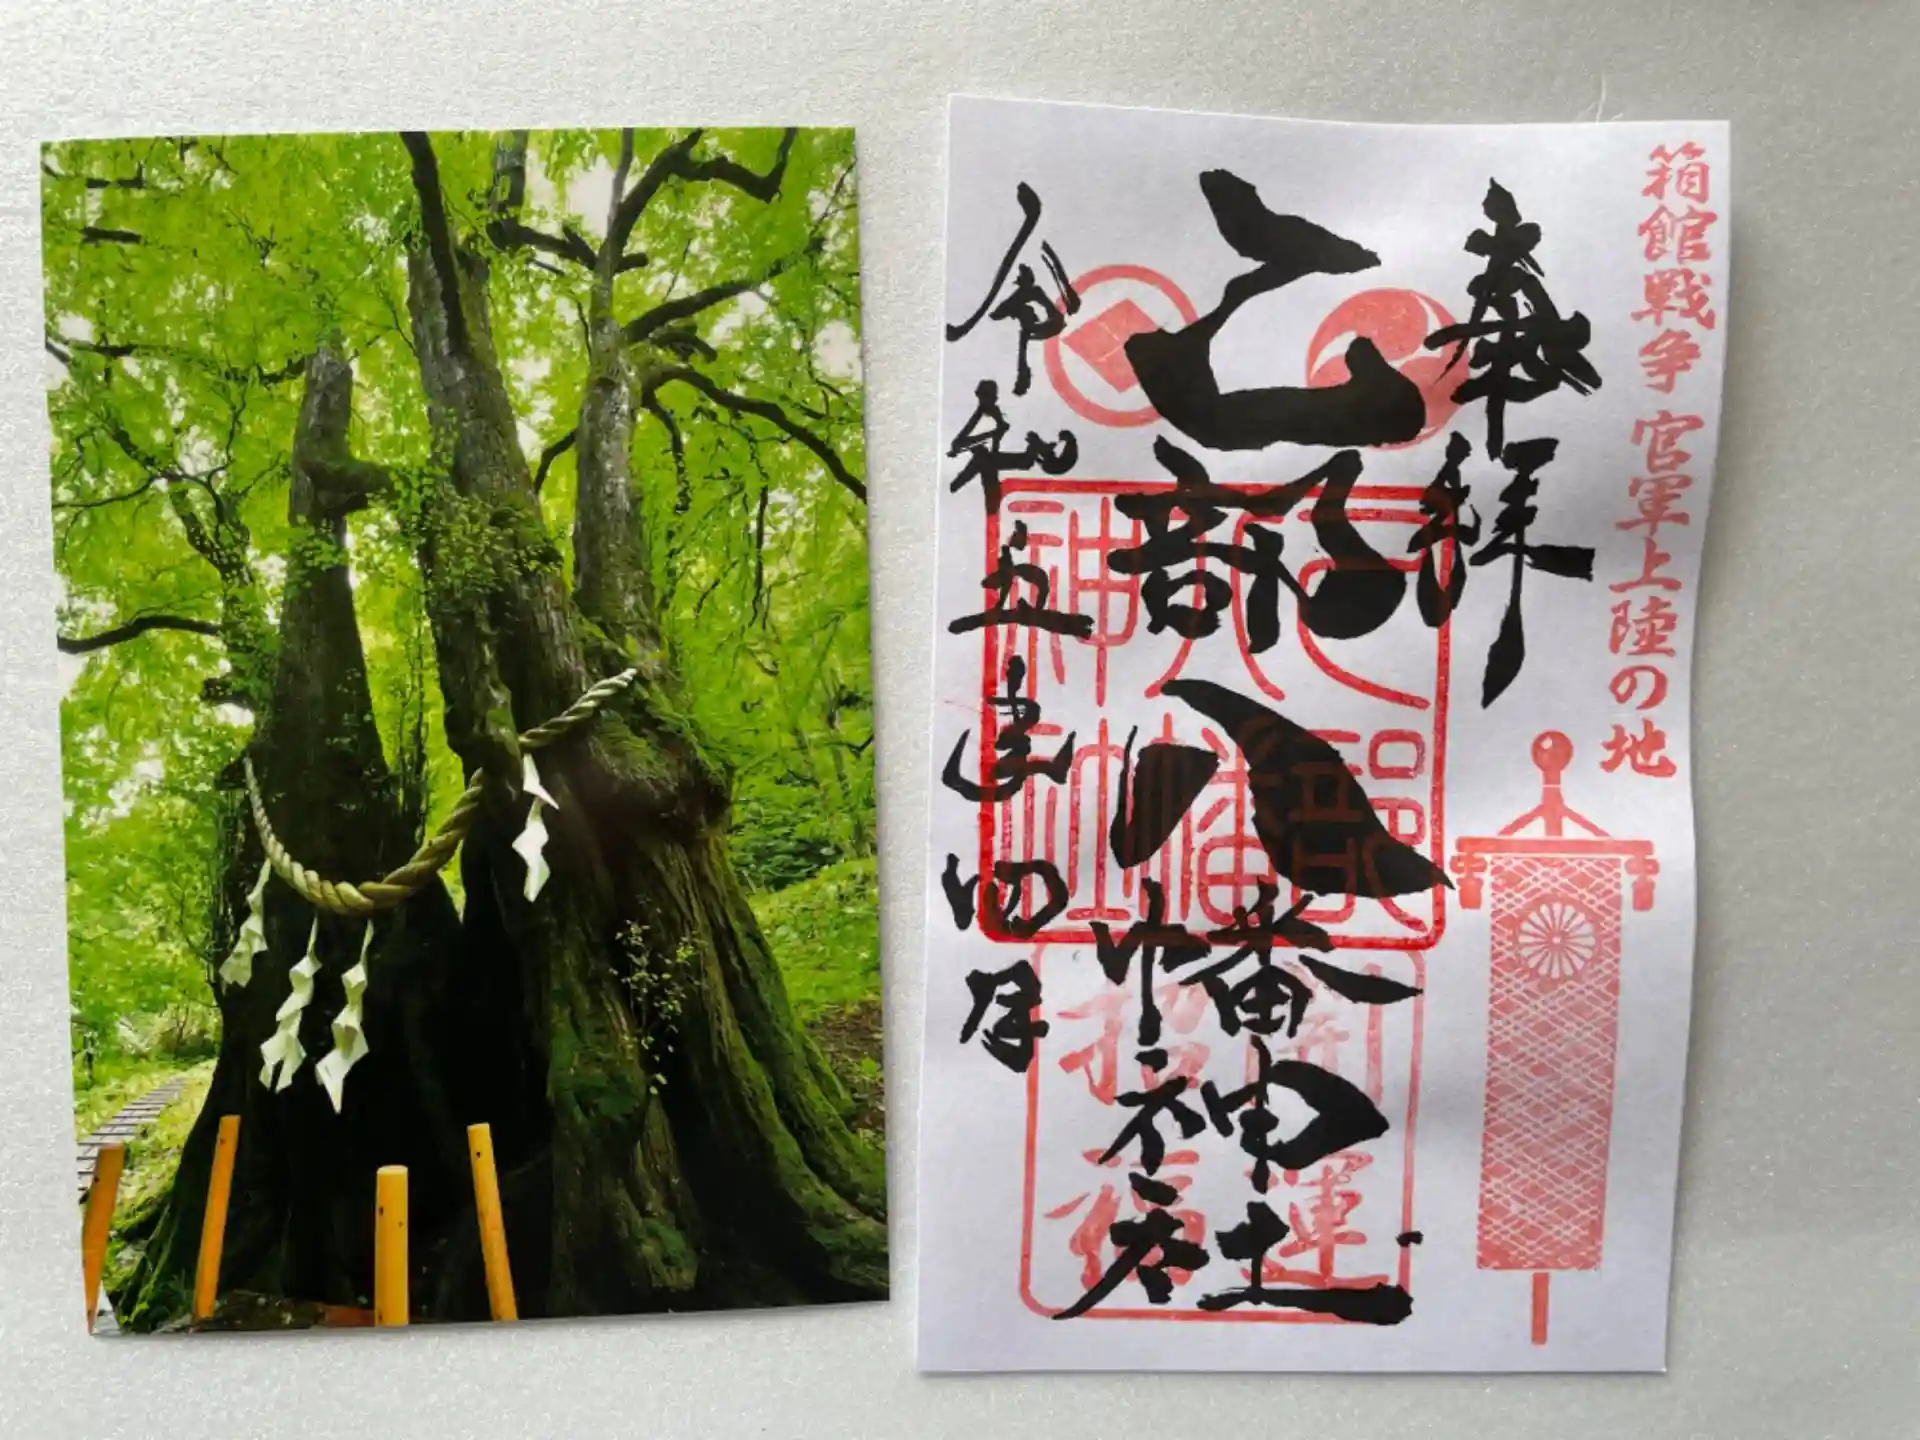 箱館戦争 官軍上陸の地
奉拝
乙部八幡神社
令和五年四月
乙部
八幡
神社
開運
招福